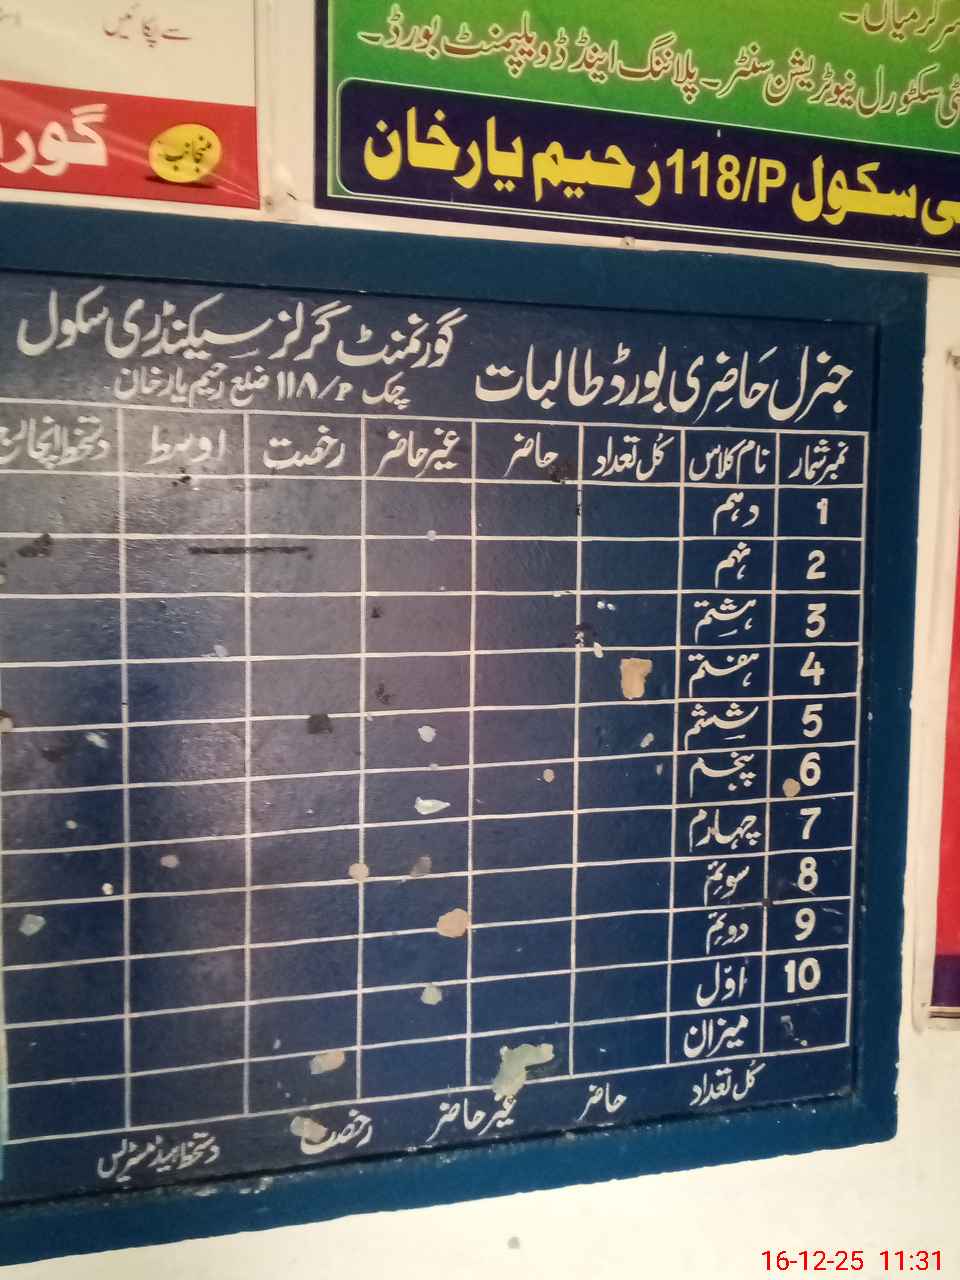 سے پکائیں
گور
منجانب
سرگرمیاں۔
سکٹورل نیوٹریشن سنٹر۔ پلاننگ اینڈ ڈویلپمنٹ بورڈ۔
سکول 118/P رحیم یار خان
جنرل حَاضِری بورڈ طالبات گورنمنٹ گرلز سیکنڈری سکول
چک ۱۱۸/P ضلع رحیم یار خان
نمبر شمار نام کلاس کُل تعداد حاضر غیر حاضر رخصت اوسط دستخط انچارج
1 دہم
2 نہم
3 ہشتم
4 ہفتم
5 ششم
6 پنجم
7 چہارم
8 سوئم
9 دوئم
10 اوّل
میزان
کُل تعداد حاضر غیر حاضر رخصت دستخط ہیڈ مسٹریس
16-12-25 11:31